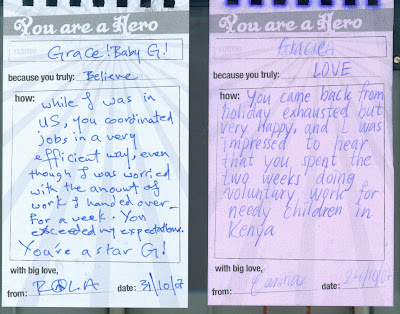 You are a Hero
name
Grace! Baby G!
because you truly: Believe
how: while I was in
US, you coordinated
jobs in a very
efficient way, even
though I was worried
with the amount of
work I handed over
for a week. You
exceeded my expectations.
You're a star G!
with big love,
from: POLA date: 31/10/07
You are a Hero
name
because you truly: LOVE
how: You came back from
holiday exhausted but
very happy, and I was
impressed to hear
that you spent the
two weeks doing
voluntary work for
needy children in
Kenya
with big love,
from: date: 24/10/07